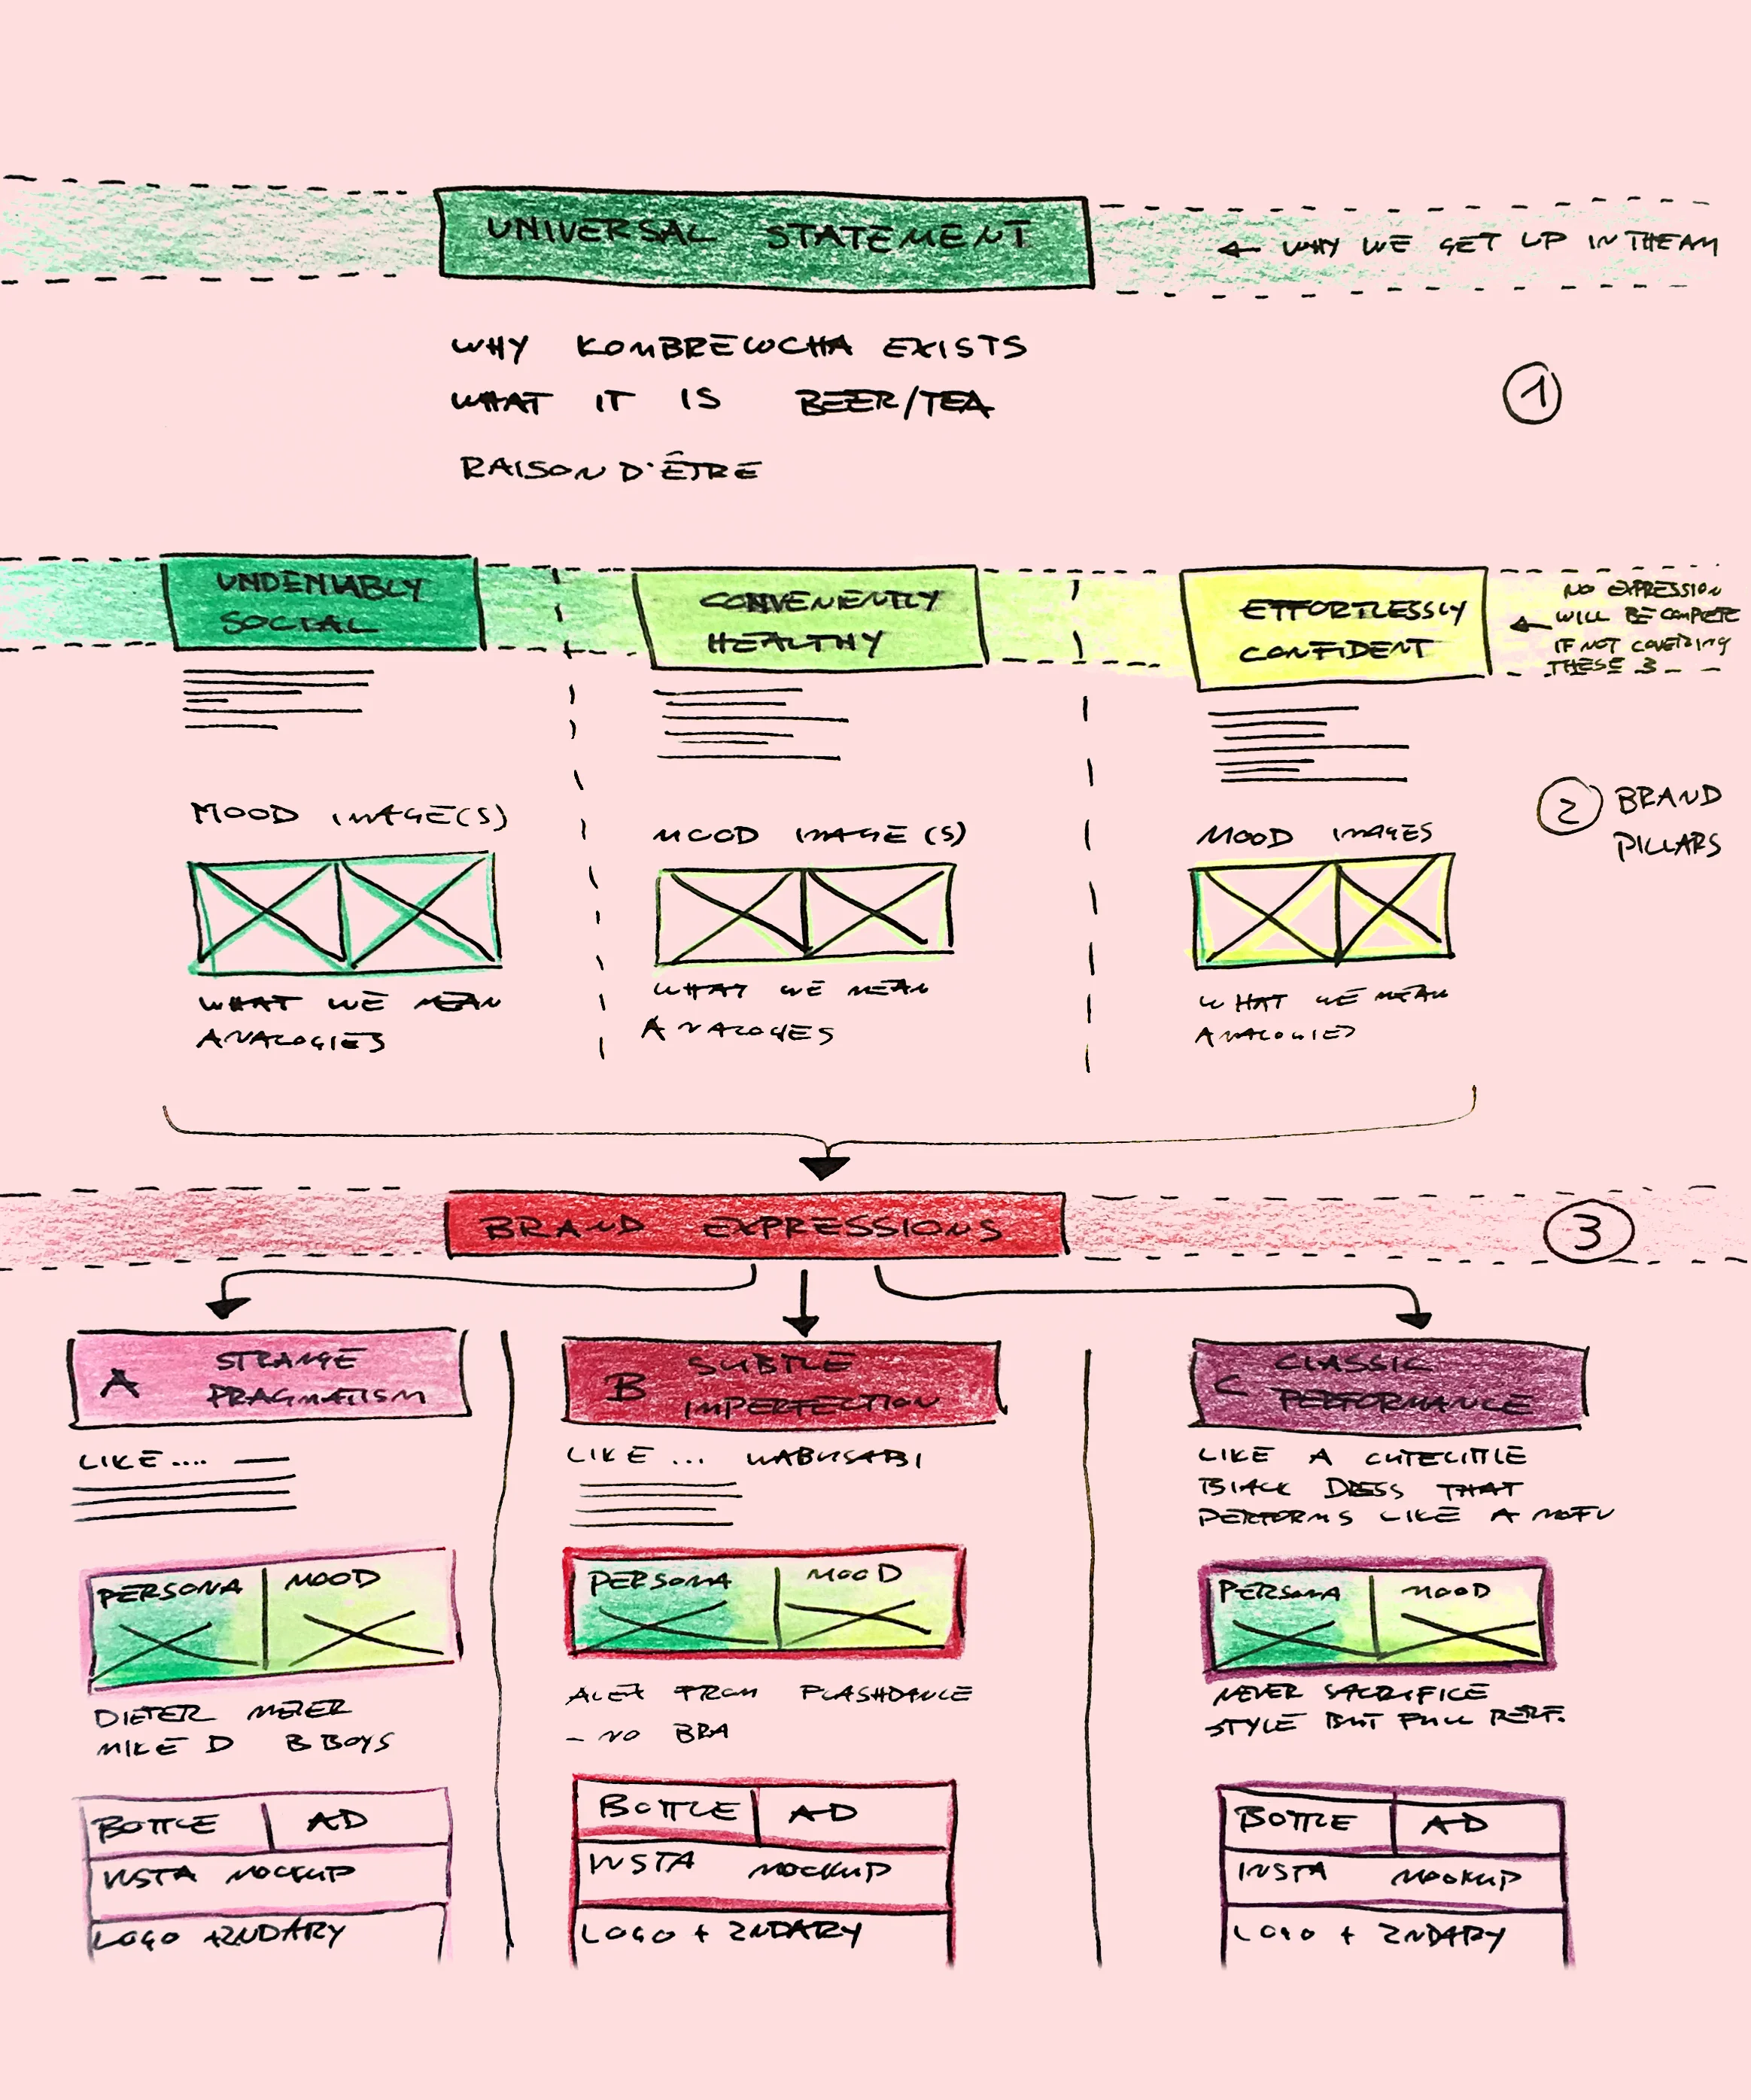 UNIVERSAL STATEMENT
← WHY WE GET UP IN THE AM
WHY KOMBREWCHA EXISTS
WHAT IT IS BEER/TEA
RAISON D'ÊTRE
1
UNDENIABLY
SOCIAL
CONVENIENTLY
HEALTHY
EFFORTLESSLY
CONFIDENT
NO EXPRESSION
← WILL BE COMPETE
IF NOT COVERING
THESE 3
MOOD IMAGE(S)
MOOD IMAGE(S)
MOOD IMAGES
2 BRAND
PILLARS
WHAT WE MEAN
ANALOGIES
WHAT WE MEAN
ANALOGIES
WHAT WE MEAN
ANALOGIES
BRAND EXPRESSIONS
3
A STRANGE
PRAGMATISM
LIKE ....
PERSONA MOOD
DIETER MEIER
MIKE D B BOYS
BOTTLE AD
INSTA MOCKUP
LOGO + 2NDARY
B SUBTLE
IMPERFECTION
LIKE ... WABUSABI
PERSONA MOOD
ALEX FROM FLASHDANCE
- NO BRA
BOTTLE AD
INSTA MOCKUP
LOGO + 2NDARY
C CLASSIC
PERFORMANCE
LIKE A CUTE LITTLE
BLACK DRESS THAT
PERFORMS LIKE A MOFU
PERSONA MOOD
NEVER SACRIFICE
STYLE BUT FULL PERF.
BOTTLE AD
INSTA MOCKUP
LOGO + 2NDARY